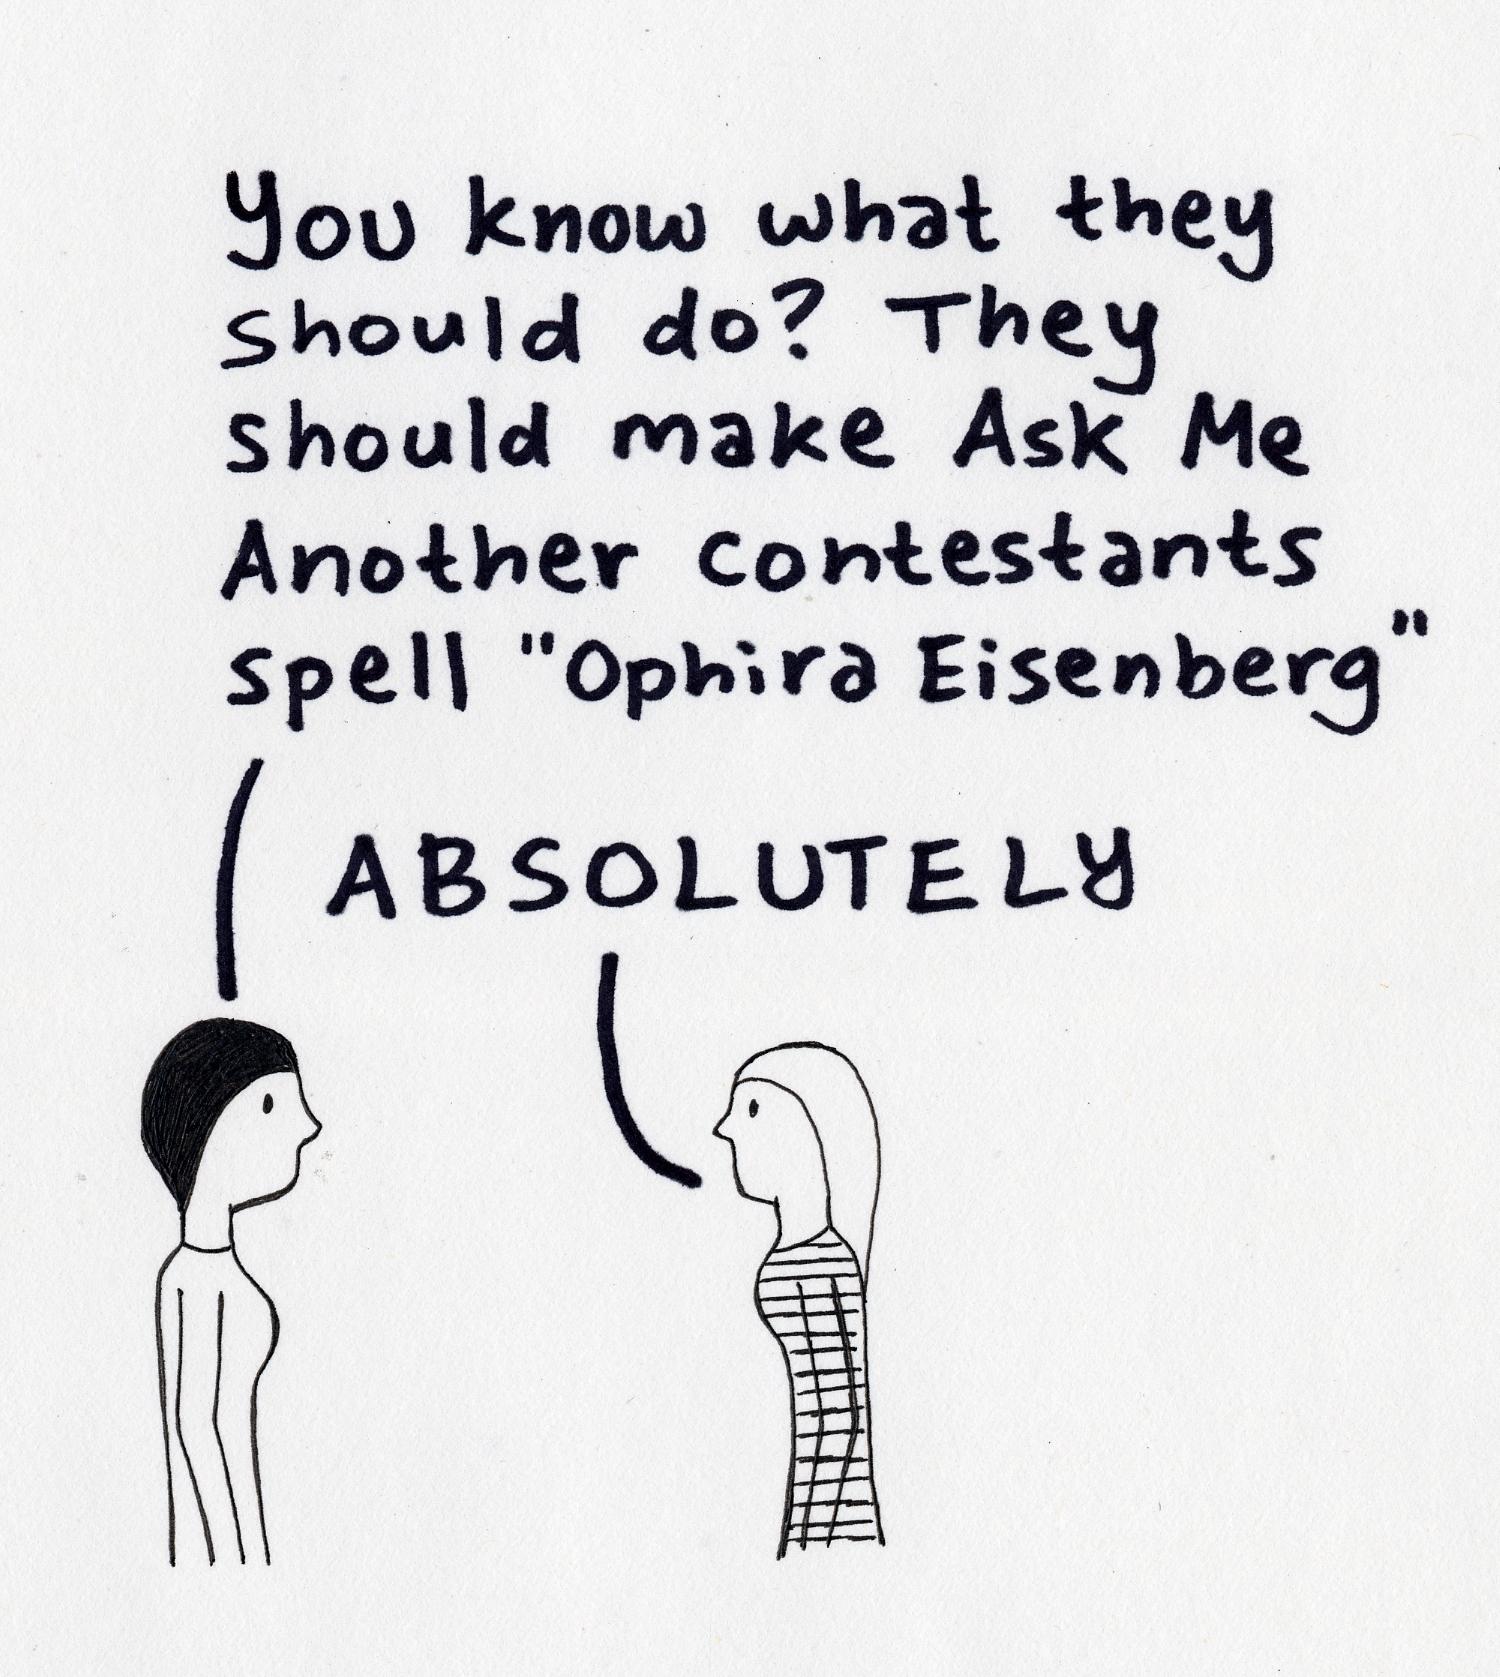 You know what they
should do? They
should make Ask Me
Another contestants
spell "Ophira Eisenberg"
ABSOLUTELY